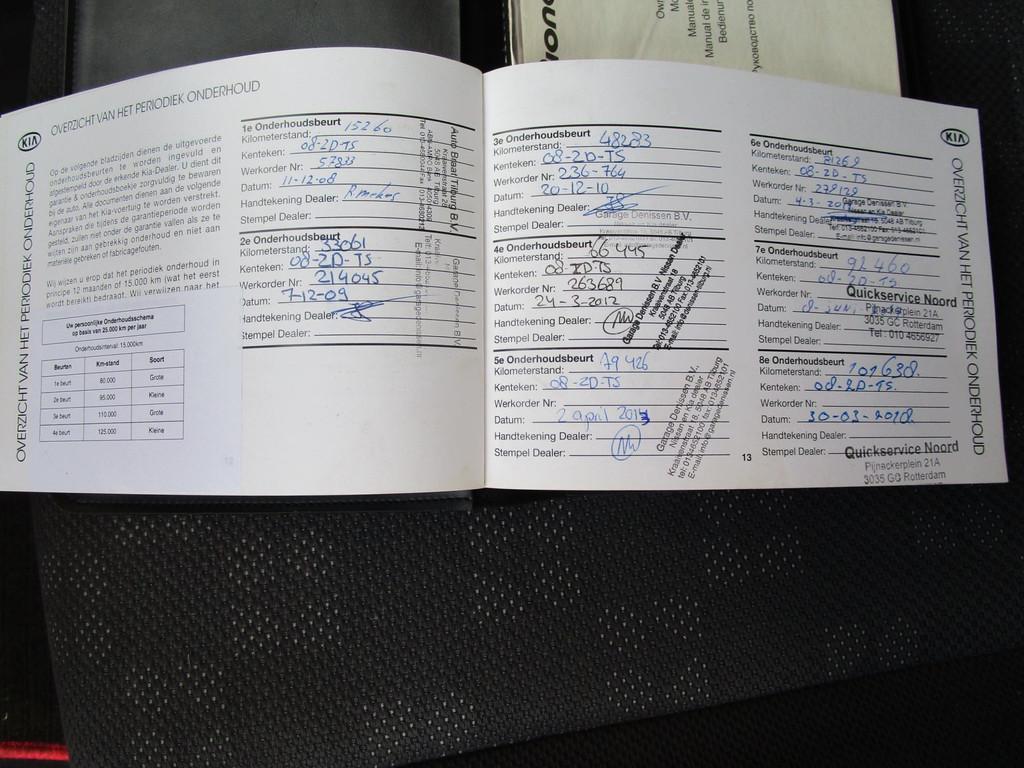 OVERZICHT VAN HET PERIODIEK ONDERHOUD
KIA
OVERZICHT VAN HET PERIODIEK ONDERHOUD
Op de volgende bladzijden dienen de uitgevoerde
onderhoudsbeurten te worden ingevuld en
afgestempeld door de erkende Kia-Dealer. U dient dit
garantie & onderhoudsboekje zorgvuldig te bewaren
bij de auto. Alle documenten dienen aan de volgende
eigenaar van het Kia-voertuig te worden verstrekt.
Aanspraken die tijdens de garantieperiode worden
gesteld, zullen niet onder de garantie vallen als ze te
wijten zijn aan gebrekkig onderhoud en niet aan
materiële gebreken of fabricagefouten.
Wij wijzen u erop dat het periodiek onderhoud in
principe 12 maanden of 15.000 km (wat het eerst
wordt bereikt) bedraagt. Wij verwijzen naar het
Uw persoonlijke Onderhoudsschema
op basis van 25.000 km per jaar
Onderhoudsinterval: 15.000km
Beurten Km-stand Soort
1e beurt 80.000 Grote
2e beurt 95.000 Kleine
3e beurt 110.000 Grote
4e beurt 125.000 Kleine
12
1e Onderhoudsbeurt
Kilometerstand: 15260
Kenteken: 08-ZD-TS
Werkorder Nr: 57833
Datum: 11-12-08
Handtekening Dealer:
Stempel Dealer:
Auto Braal Tilburg B.V.
2e Onderhoudsbeurt
Kilometerstand: 33061
Kenteken: 08-ZD-TS
Werkorder Nr: 214045
Datum: 7-12-09
Handtekening Dealer:
Stempel Dealer:
Garage Denissen B.V.
3e Onderhoudsbeurt
Kilometerstand: 48283
Kenteken: 08-ZD-TS
Werkorder Nr: 236-764
Datum: 20-12-10
Handtekening Dealer:
Stempel Dealer:
Garage Denissen B.V.
4e Onderhoudsbeurt
Kilometerstand: 66445
Kenteken: 08-ZD-TS
Werkorder Nr: 263689
Datum: 24-3-2012
Handtekening Dealer:
Stempel Dealer:
Garage Denissen B.V. Nissan Dealer
Kraaivenstraat 18
5048 AB Tilburg
Tel: 013-4652100 Fax: 013-4652101
E-mail: info@garagedenissen.nl
5e Onderhoudsbeurt
Kilometerstand: 79426
Kenteken: 08-ZD-TS
Werkorder Nr:
Datum: 2 april 2013
Handtekening Dealer:
Stempel Dealer:
Garage Denissen B.V.
Nissan en Kia dealer
Kraaivenstraat 18, 5048 AB Tilburg
tel: 013-4652100 fax: 013-4652101
E-mail: info@garagedenissen.nl
13
6e Onderhoudsbeurt
Kilometerstand:
Kenteken: 08-ZD-TS
Werkorder Nr:
Datum:
Handtekening Dealer:
Stempel Dealer:
Garage Denissen B.V.
Nissan en Kia Dealer
7e Onderhoudsbeurt
Kilometerstand: 92460
Kenteken: 08-ZD-TS
Werkorder Nr:
Datum:
Handtekening Dealer:
Stempel Dealer:
Quickservice Noord
Pijnackerplein 21A
3035 GC Rotterdam
Tel.: 010 4656927
8e Onderhoudsbeurt
Kilometerstand: 101630.
Kenteken: 08-ZD-TS.
Werkorder Nr:
Datum: 30-03-2018.
Handtekening Dealer:
Stempel Dealer:
Quickservice Noord
Pijnackerplein 21A
3035 GC Rotterdam
KIA
OVERZICHT VAN HET PERIODIEK ONDERHOUD
Manual de
Bedienun
Руководство по